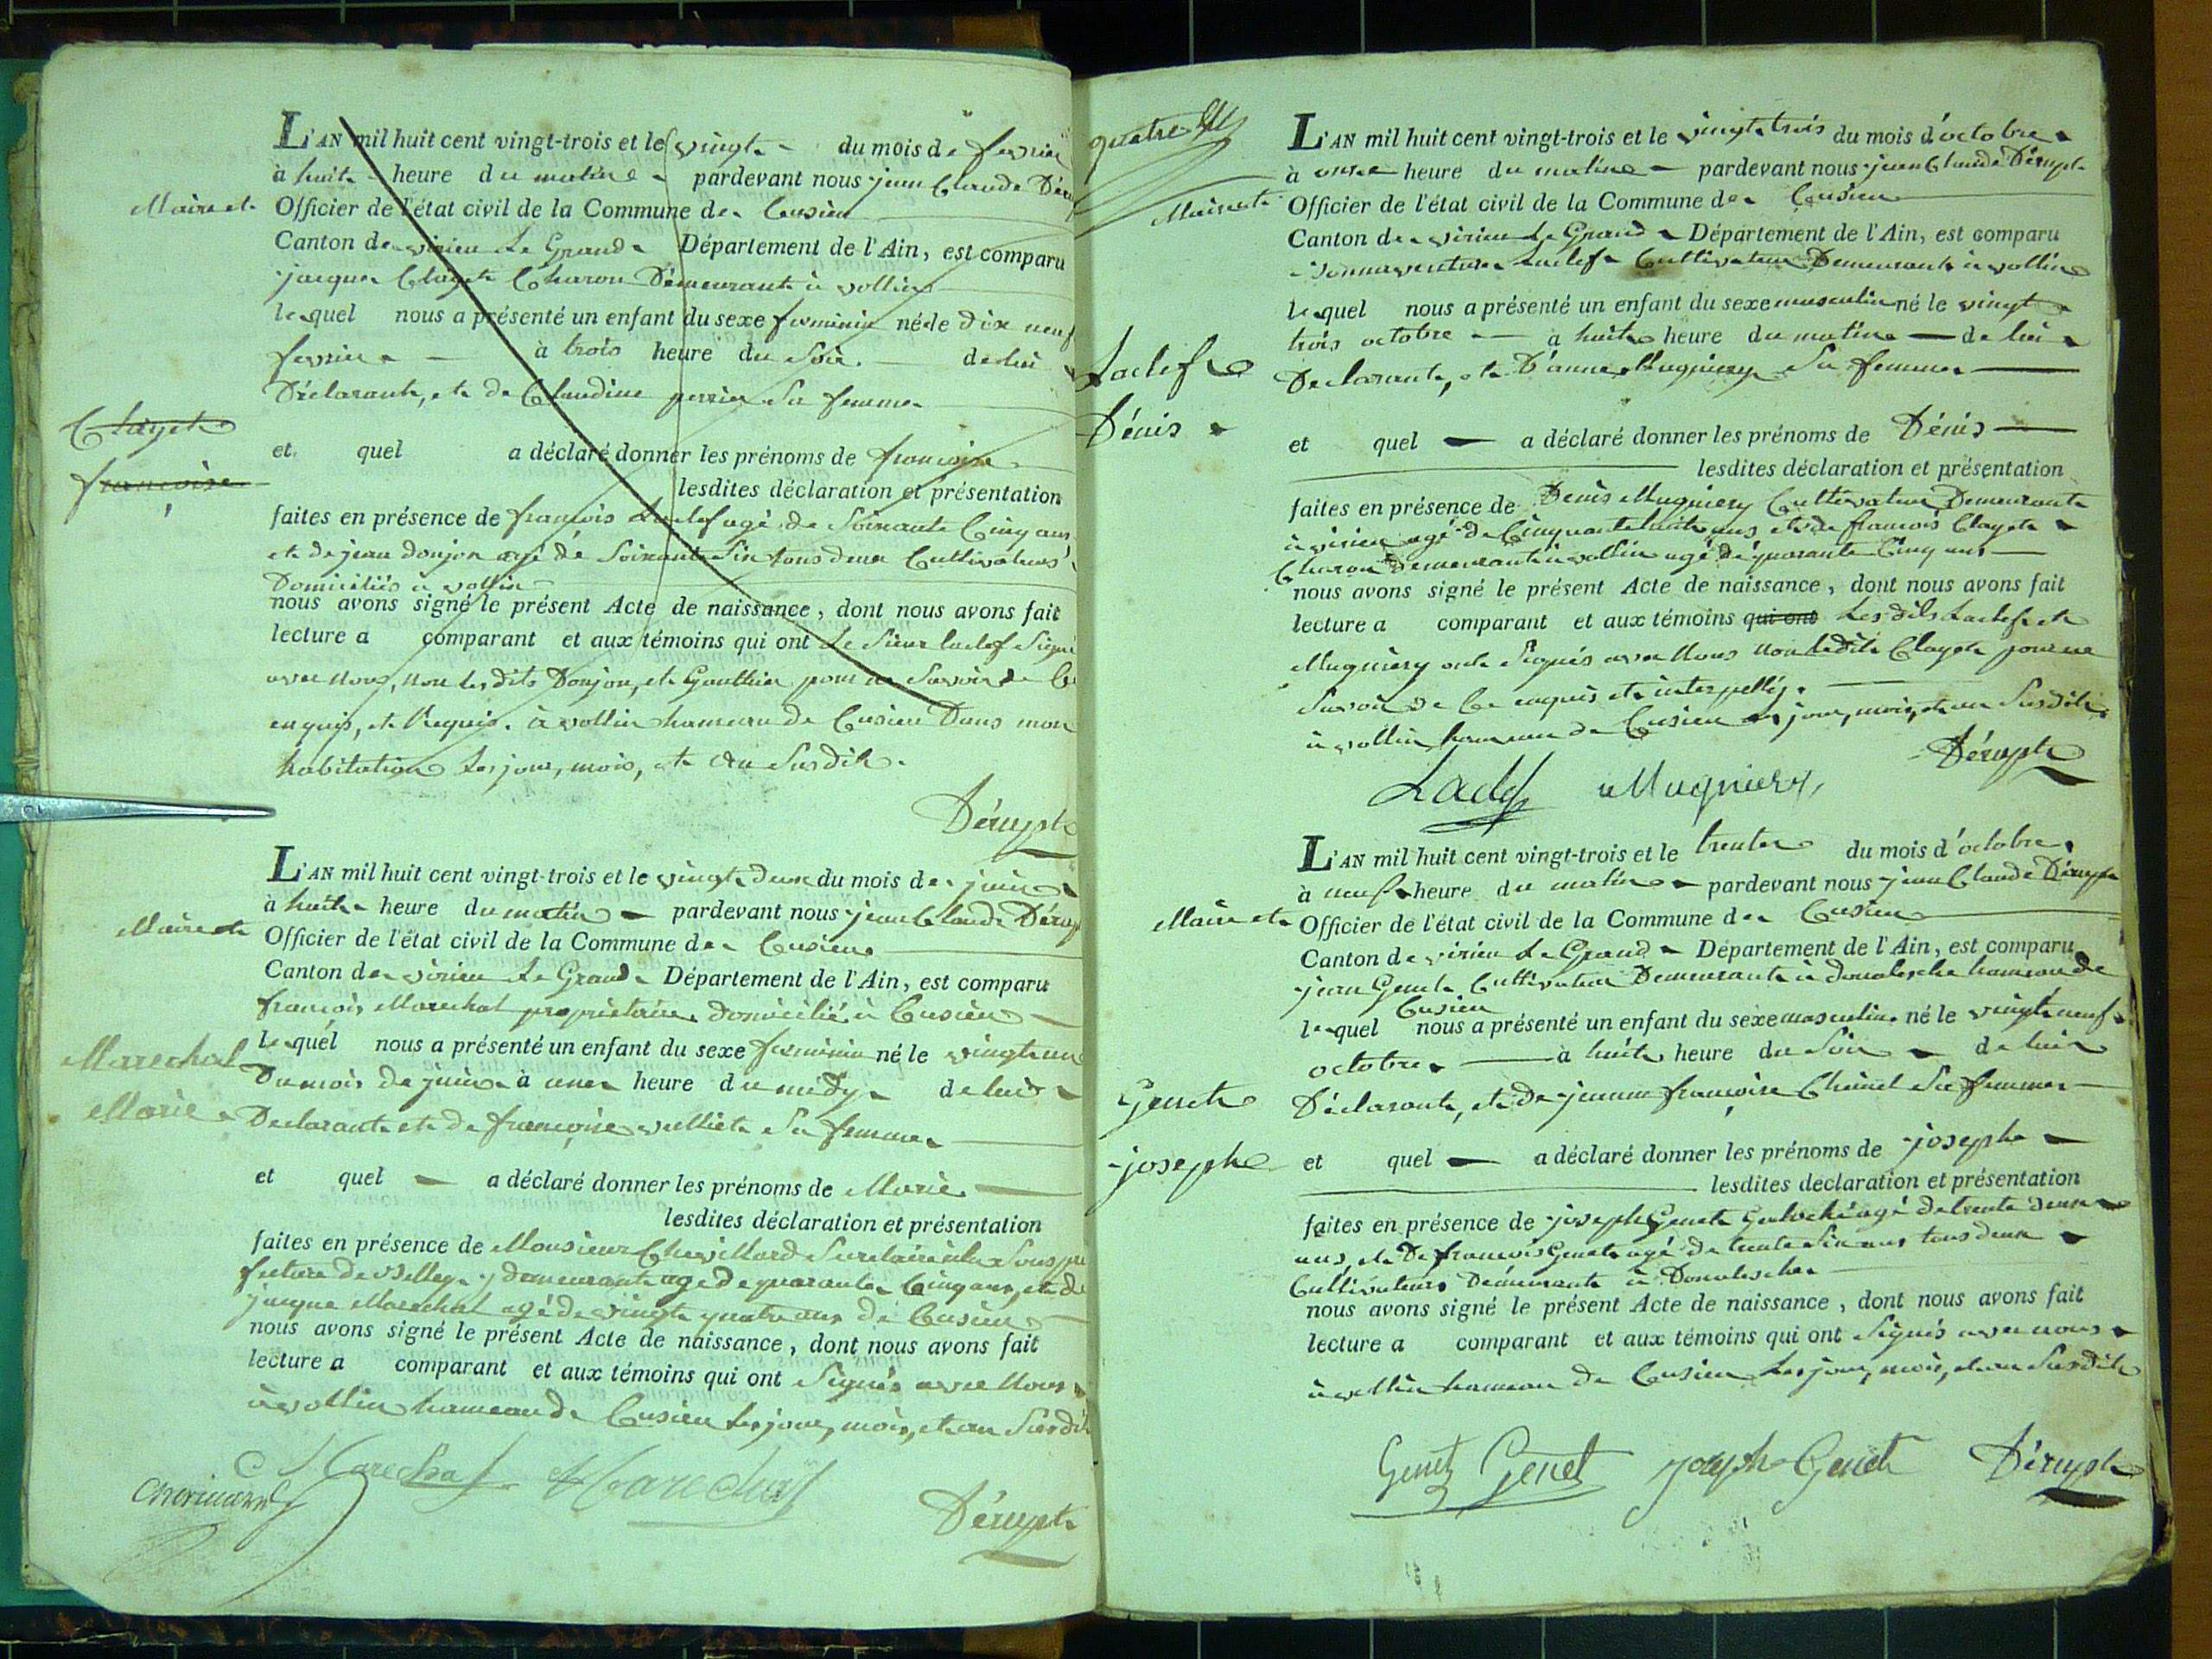 L'AN mil huit cent vingt-trois et le vingt du mois de fevrier
à huit heure du matin pardevant nous jean Claude
Maire et Officier de l'état civil de la Commune de Cusieu
Canton de virieu Le Grand Département de l'Ain, est comparu
jacques Clayet Charon Demeurant à vollien
lequel nous a présenté un enfant du sexe feminin né le dix neuf
fevrier à trois heure du Soir de lui
Déclarant, et de Claudine perrier Sa femme
Clayet
françoise
et quel a déclaré donner les prénoms de françoise
lesdites déclaration et présentation
faites en présence de françois Laclef agé de Soixante Cinq ans
et de jean donjon agé de Soixante Six tous deux Cultivateurs
Domiciliés à vollien
nous avons signé le présent Acte de naissance, dont nous avons fait
lecture a comparant et aux témoins qui ont Le Sieur laclef Signé
avec Nous, non les dits Donjon, et Gauthier pour ne Savoir de Ce
enquis, et Requis. à vollien hameau de Cusieu Dans mon
habitation Les jour, mois, et an Susdit.
Dérupt
L'AN mil huit cent vingt-trois et le vingt deux du mois de juin
à huit heure du matin pardevant nous jean Claude
Maire et Officier de l'état civil de la Commune de Cusieu
Canton de virieu Le Grand Département de l'Ain, est comparu
françois Marechal proprietaire domicilié à Cusieu
lequel nous a présenté un enfant du sexe feminin né le vingt un
Du mois de juin à une heure du midy de lui
Marechal
Marie
Declarant et de françoise vulliet Sa femme
et quel a déclaré donner les prénoms de Marie
lesdites déclaration et présentation
faites en présence de Monsieur Chevillard Secretaire à la Sous pré
fecture de Belley y demeurant agé de quarante Cinq ans, et de
jacque Marechal agé de vingt quatre ans de Cusieu
nous avons signé le présent Acte de naissance, dont nous avons fait
lecture a comparant et aux témoins qui ont Signés avec Nous
à vollien hameau de Cusieu Les jour, mois, et an Susdit
Marechal Marechal
Dérupt
quatre
L'AN mil huit cent vingt-trois et le vingt trois du mois d'octobre
à onze heure du matin pardevant nous jean Claude Dérupt
Maire et Officier de l'état civil de la Commune de Cusieu
Canton de virieu Le Grand Département de l'Ain, est comparu
Bonnaventure Laclef Cultivateur Demeurant à vollien
lequel nous a présenté un enfant du sexe masculin né le vingt
trois octobre à huit heure du matin de lui
Laclef
Dénis
Declarant, et D'anne Mugniery Sa femme
et quel a déclaré donner les prénoms de Dénis
lesdites déclaration et présentation
faites en présence de Denis Mugniery Cultivateur Demeurant
à virieu agé de Cinquante huit ans, et de françois Clayet
Charon demeurant à vollien agé de quarante Cinq ans
nous avons signé le présent Acte de naissance, dont nous avons fait
lecture a comparant et aux témoins qui ont Les dits Laclef et
Mugniery ont Signés avec Nous non ledit Clayet pour ne
Savoir de Ce enquis et interpellé.
à vollien hameau de Cusieu Les jour, mois, et an Susdit.
Dérupt
Laclef Mugniery
L'AN mil huit cent vingt-trois et le trente du mois d'octobre
à neuf heure du matin pardevant nous jean Claude Dérupt
Maire et Officier de l'état civil de la Commune de Cusieu
Canton de virieu Le Grand Département de l'Ain, est comparu
jean Genet Cultivateur Demeurant à hameau de
Cusieu
lequel nous a présenté un enfant du sexe masculin né le vingt neuf
octobre à huit heure du Soir de lui
Genet
joseph
Déclarant, et de jeanne françoise Sa femme
et quel a déclaré donner les prénoms de joseph
lesdites déclaration et présentation
faites en présence de joseph Genet agé de trente deux
ans, et De françois Genet agé de trente Six ans tous deux
Cultivateurs Demeurant à
nous avons signé le présent Acte de naissance, dont nous avons fait
lecture a comparant et aux témoins qui ont Signés avec nous
à vollien hameau de Cusieu Les jour, mois, et an Susdit
Genet Genet joseph Genet Dérupt